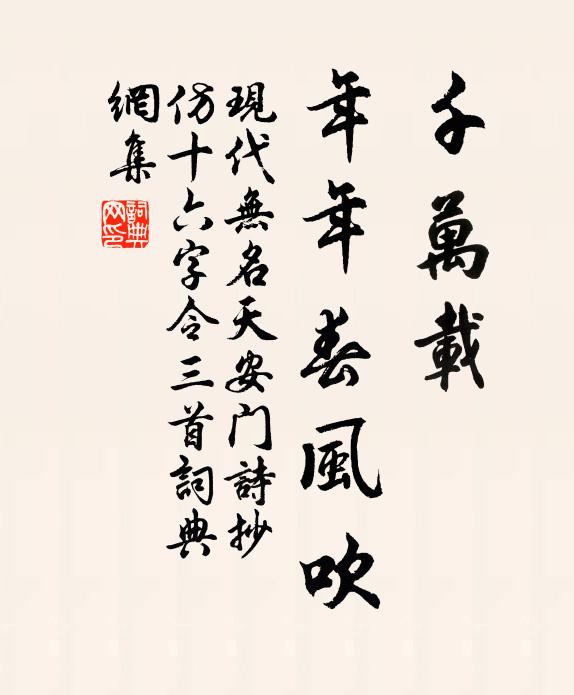 千萬載
年年春風吹
現代無名天安门詩抄
仿十六字令三首詞典
網集
詞典網印